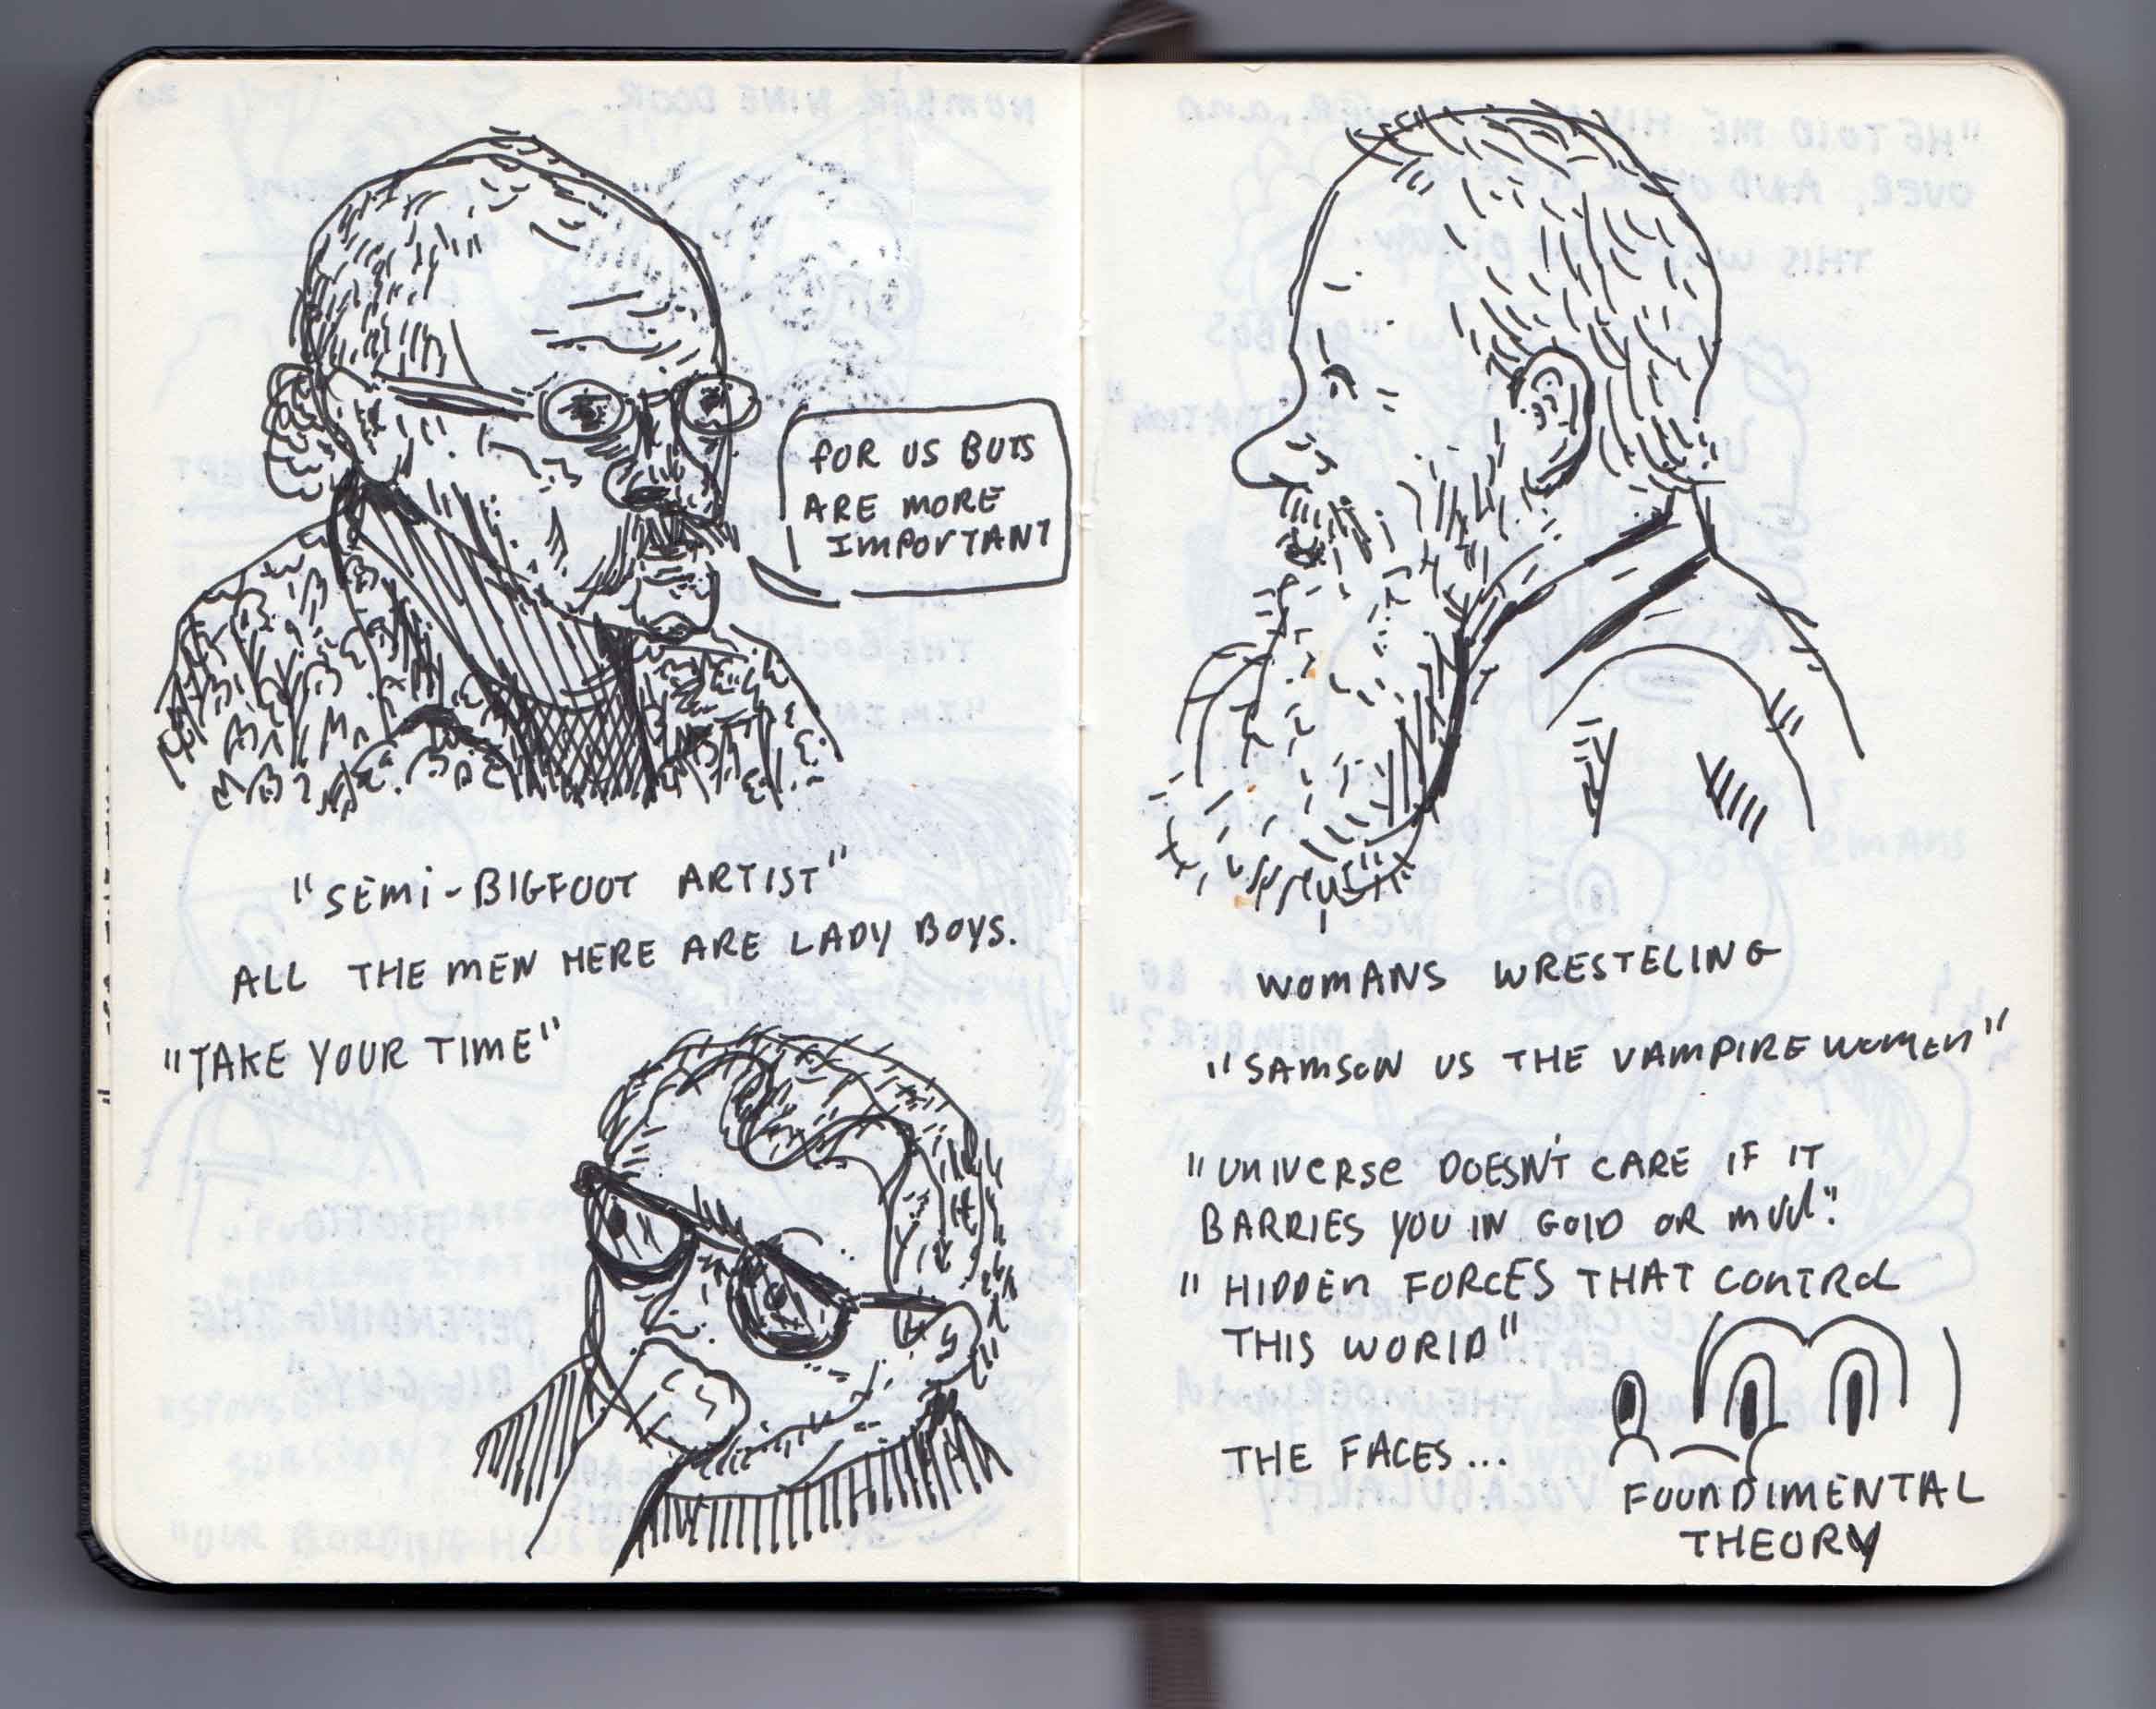 FOR US BUTS
ARE MORE
IMPORTANT
"SEMI-BIGFOOT ARTIST"
ALL THE MEN HERE ARE LADY BOYS.
"TAKE YOUR TIME"
WOMANS WRESTELING
"SAMSON US THE VAMPIRE WOMEN"
"UNIVERSE DOESN'T CARE IF IT
BARRIES YOU IN GOLD OR MUD".
"HIDDEN FORCES THAT CONTROL
THIS WORLD"
THE FACES...
FOUNDIMENTAL
THEORY